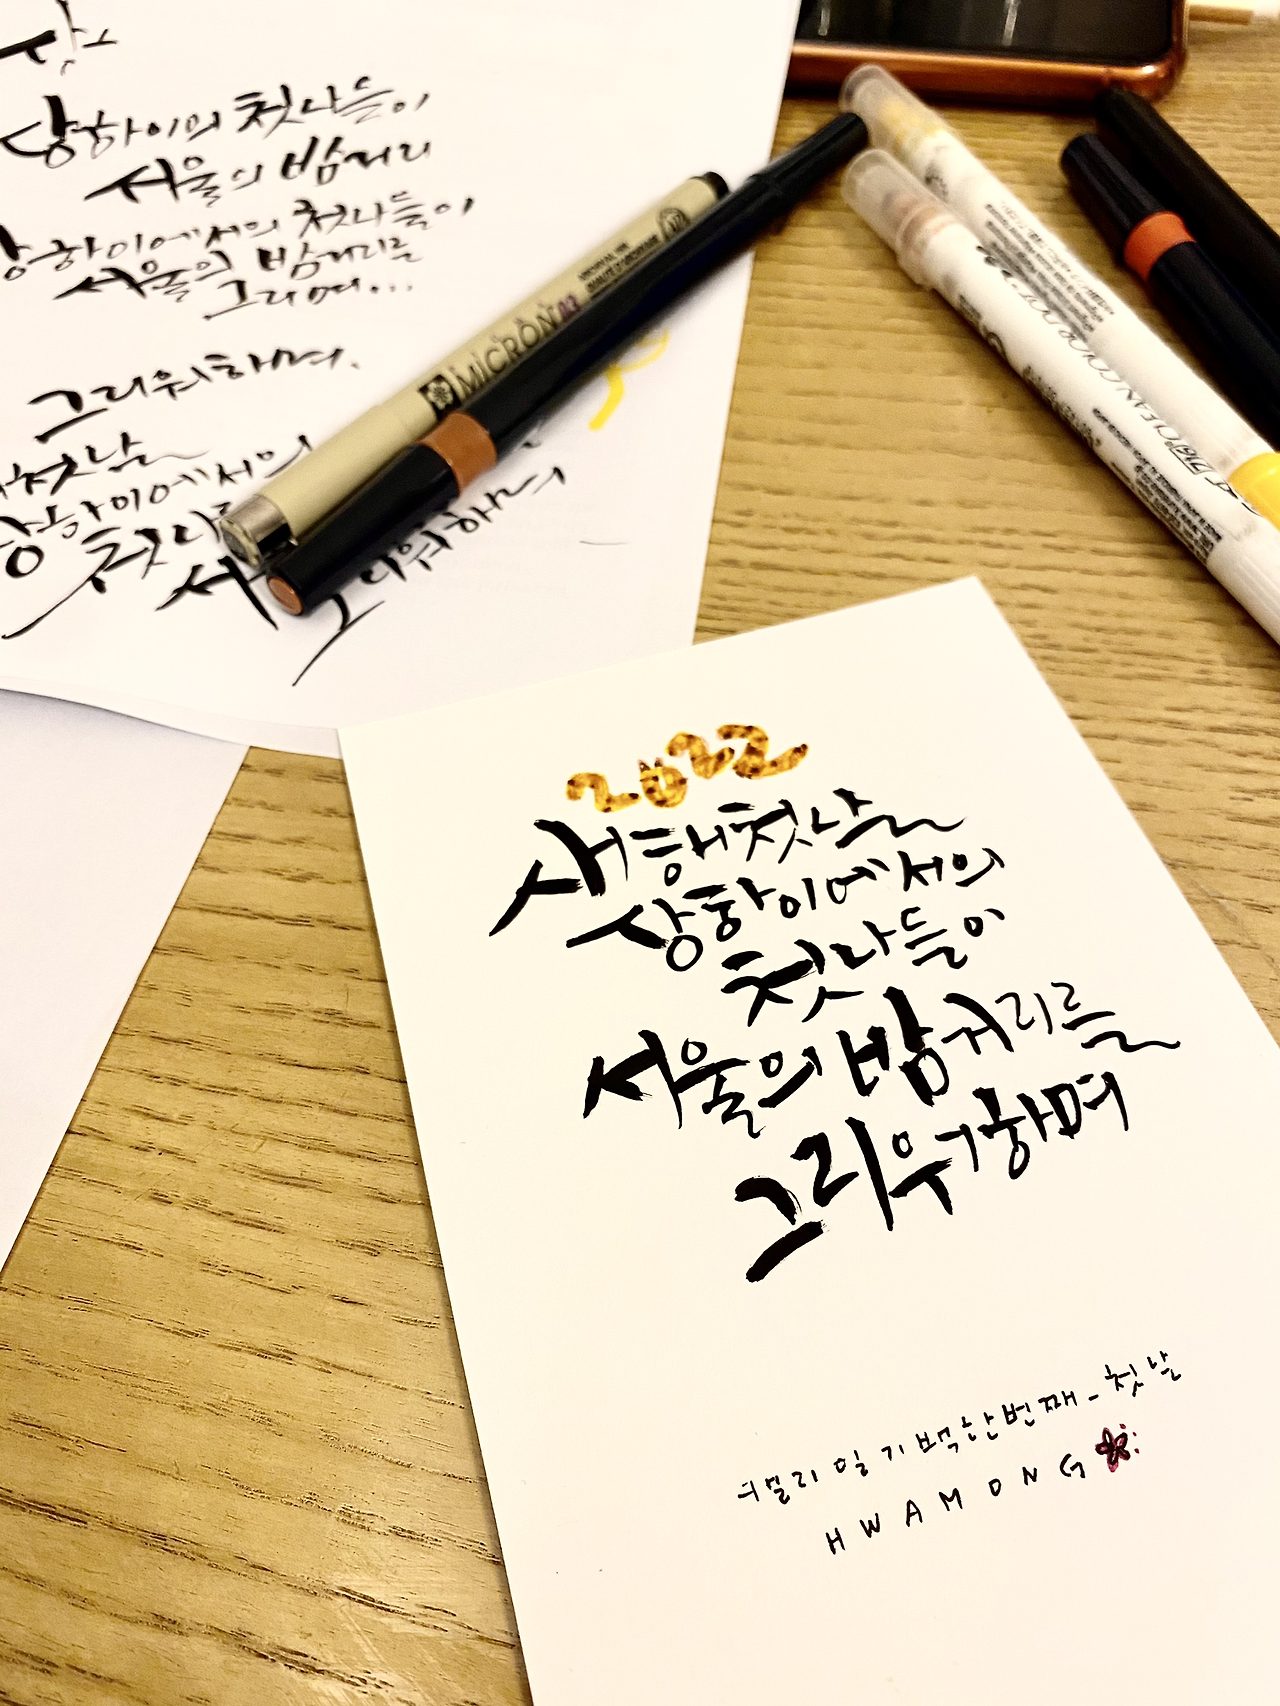 상하이의 첫나들이
서울의 밤거리
상하이에서의 첫나들이
서울의 밤거리를
그리며...
그리워하며.
첫날
상하이에서의
첫나
서
그리워하며
MICRON 03
2022
새해첫날
상하이에서의
첫나들이
서울의 밤거리를
그리워하며
캘리일기백한번째_첫날
HWAMONG